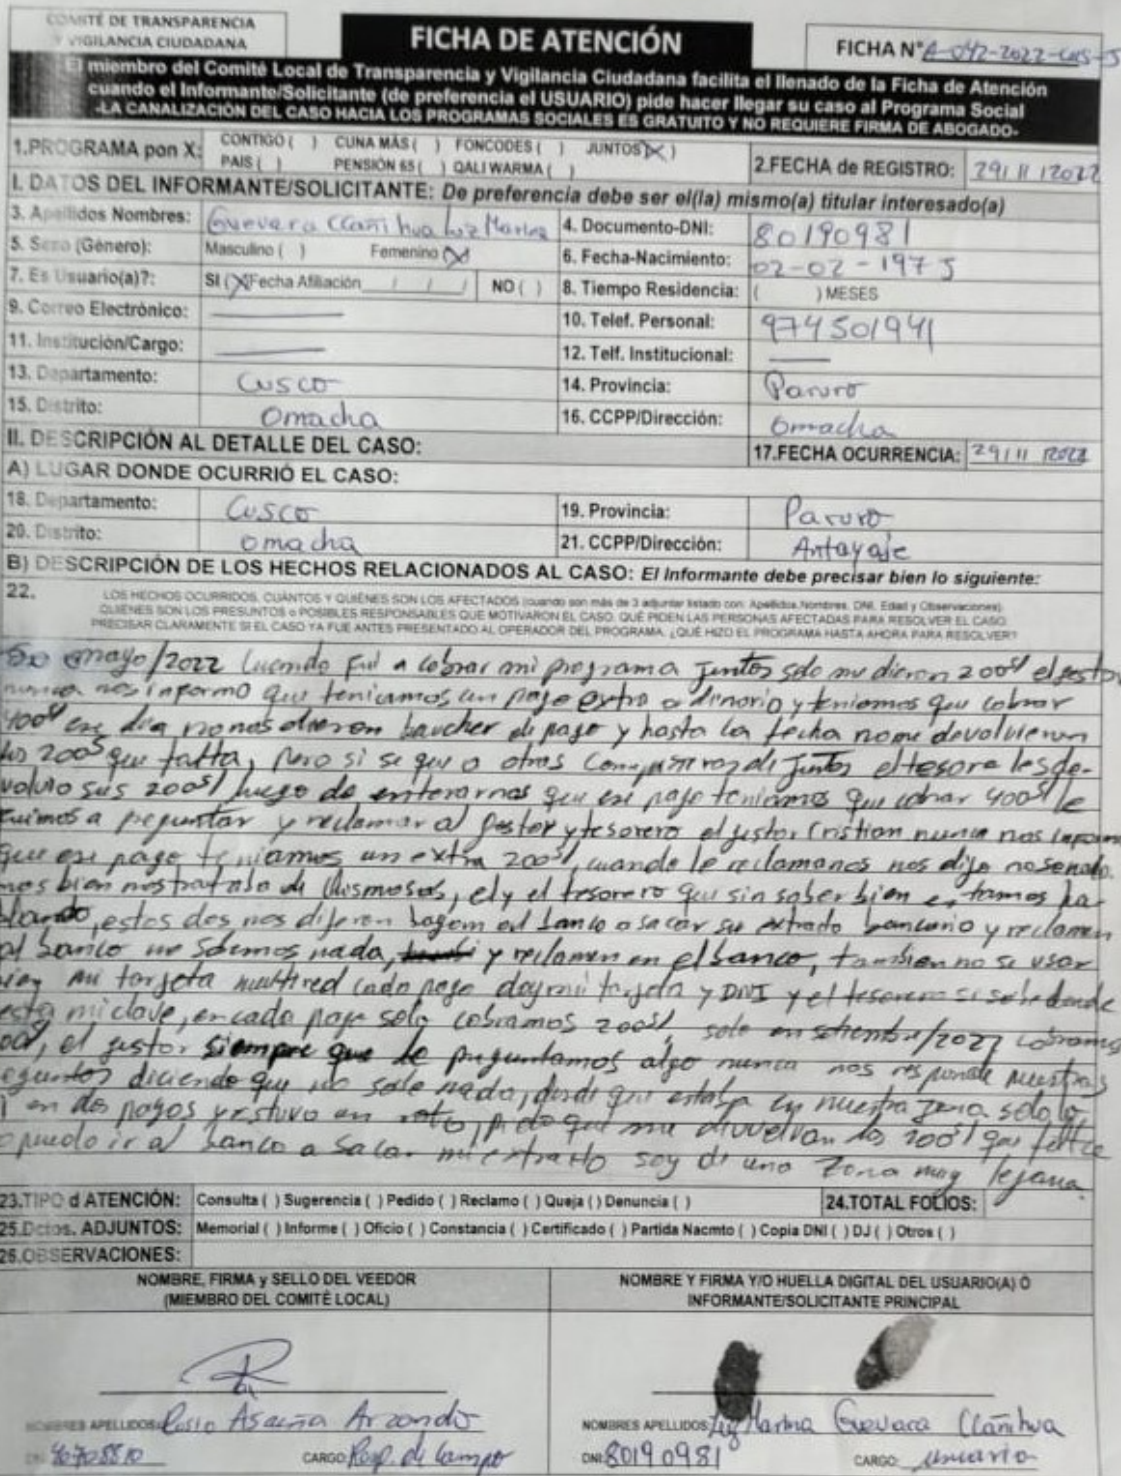 COMITÉ DE TRANSPARENCIA
Y VIGILANCIA CIUDADANA
FICHA DE ATENCIÓN
FICHA N° A-042-2022-
El miembro del Comité Local de Transparencia y Vigilancia Ciudadana facilita el llenado de la Ficha de Atención
cuando el Informante/Solicitante (de preferencia el USUARIO) pide hacer llegar su caso al Programa Social
-LA CANALIZACIÓN DEL CASO HACIA LOS PROGRAMAS SOCIALES ES GRATUITO Y NO REQUIERE FIRMA DE ABOGADO-
1.PROGRAMA pon X: CONTIGO ( ) CUNA MÁS ( ) FONCODES ( ) JUNTOS (X)
PAIS ( ) PENSIÓN 65 ( ) QALI WARMA ( )
2.FECHA de REGISTRO: 29/11/2022
I. DATOS DEL INFORMANTE/SOLICITANTE: De preferencia debe ser el(la) mismo(a) titular interesado(a)
3. Apellidos Nombres: Guevara Ccañihua Luz Marina 4. Documento-DNI: 80190981
5. Sexo (Género): Masculino ( ) Femenino (X) 6. Fecha-Nacimiento: 02-02-1975
7. Es Usuario(a)?: SI (X) Fecha Afiliación / / / NO ( ) 8. Tiempo Residencia: ( ) MESES
9. Correo Electrónico: 10. Telef. Personal: 974501941
11. Institución/Cargo: 12. Telf. Institucional:
13. Departamento: Cusco 14. Provincia: Paruro
15. Distrito: Omacha 16. CCPP/Dirección: Omacha
II. DESCRIPCIÓN AL DETALLE DEL CASO: 17.FECHA OCURRENCIA: 29/11/2022
A) LUGAR DONDE OCURRIÓ EL CASO:
18. Departamento: Cusco 19. Provincia: Paruro
20. Distrito: Omacha 21. CCPP/Dirección: Antayaje
B) DESCRIPCIÓN DE LOS HECHOS RELACIONADOS AL CASO: El Informante debe precisar bien lo siguiente:
22. LOS HECHOS OCURRIDOS, CUÁNTOS Y QUIÉNES SON LOS AFECTADOS (cuando son más de 3 adjuntar listado con: Apellidos, Nombres, DNI, Edad y Observaciones).
QUIÉNES SON LOS PRESUNTOS o POSIBLES RESPONSABLES QUE MOTIVARON EL CASO. QUÉ PIDEN LAS PERSONAS AFECTADAS PARA RESOLVER EL CASO.
PRECISAR CLARAMENTE SI EL CASO YA FUE ANTES PRESENTADO AL OPERADOR DEL PROGRAMA. ¿QUÉ HIZO EL PROGRAMA HASTA AHORA PARA RESOLVER?
mayo/2022 cuando fui a cobrar mi programa Juntos solo me dieron 200s/ el gestor
nunca nos informo que teniamos un pago extra o dinario y teniamos que cobrar
400s/ ese dia no nos dieron baucher de pago y hasta la fecha no me devolvieron
los 200s/ que falta, pero si se que a otras compañeras de Juntos el tesore les de-
volvio sus 200s/ luego de enterarnos que ese pago teniamos que cobrar 400s/ le
fuimos a preguntar y reclamar al gestor y tesorero el gestor Cristian nunca nos informo
que ese pago teniamos un extra 200s/, cuando le reclamamos nos dijo no se nada.
mas bien nos trataba de chismosas, el y el tesorero que sin saber bien estamos ha-
blando, estos dos nos dijeron hagan al banco a sacar su extrado bancario y reclamen
al banco no sabemos nada, y reclamen en el banco, tambien no se usar
bien mi tarjeta multired cada pago doy mi tarjeta y DNI y el tesorero si sabe donde
esta mi clave, en cada pago solo cobramos 200s/, solo en setiembre/2022 cobramos
el gestor siempre que le preguntamos algo nunca nos responde nuestras
diciendo que no sabe nada, desde que estaba en nuestra zona solo
en dos pagos y estuvo un pido que me devuelvan los 200s/ que falta
puedo ir al banco a sacar mi extracto soy de una zona muy lejana
23.TIPO d ATENCIÓN: Consulta ( ) Sugerencia ( ) Pedido ( ) Reclamo ( ) Queja ( ) Denuncia ( ) 24.TOTAL FOLIOS:
25.Dctos. ADJUNTOS: Memorial ( ) Informe ( ) Oficio ( ) Constancia ( ) Certificado ( ) Partida Nacmto ( ) Copia DNI ( ) DJ ( ) Otros ( )
26.OBSERVACIONES:
NOMBRE, FIRMA y SELLO DEL VEEDOR
(MIEMBRO DEL COMITÉ LOCAL)
NOMBRE Y FIRMA Y/O HUELLA DIGITAL DEL USUARIO(A) O
INFORMANTE/SOLICITANTE PRINCIPAL
NOMBRES APELLIDOS: Rosio Arzondo
DNI: 40708810 CARGO: Resp. de Campo
NOMBRES APELLIDOS: Luz Marina Guevara Ccañihua
DNI: 80190981 CARGO: usuaria